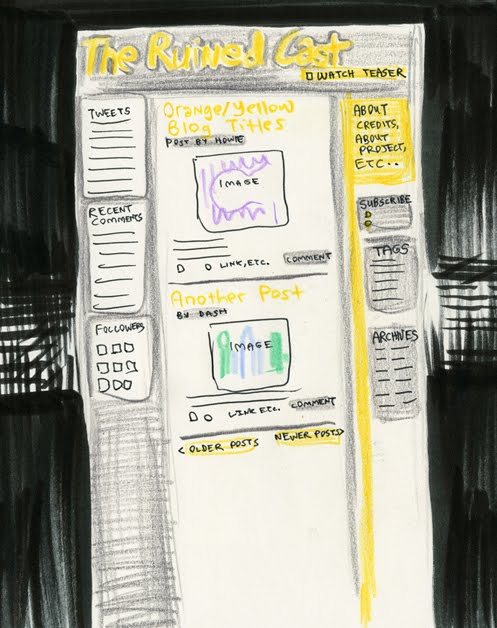 The Ruined Cast
WATCH TEASER
TWEETS
RECENT
COMMENTS
FOLLOWERS
Orange/Yellow
Blog Titles
POST BY HOWIE
IMAGE
LINK, ETC.
COMMENT
Another Post
BY DASH
IMAGE
LINK ETC.
COMMENT
< OLDER POSTS
NEWER POSTS>
ABOUT
CREDITS,
ABOUT
PROJECT,
ETC..
SUBSCRIBE
TAGS
ARCHIVES